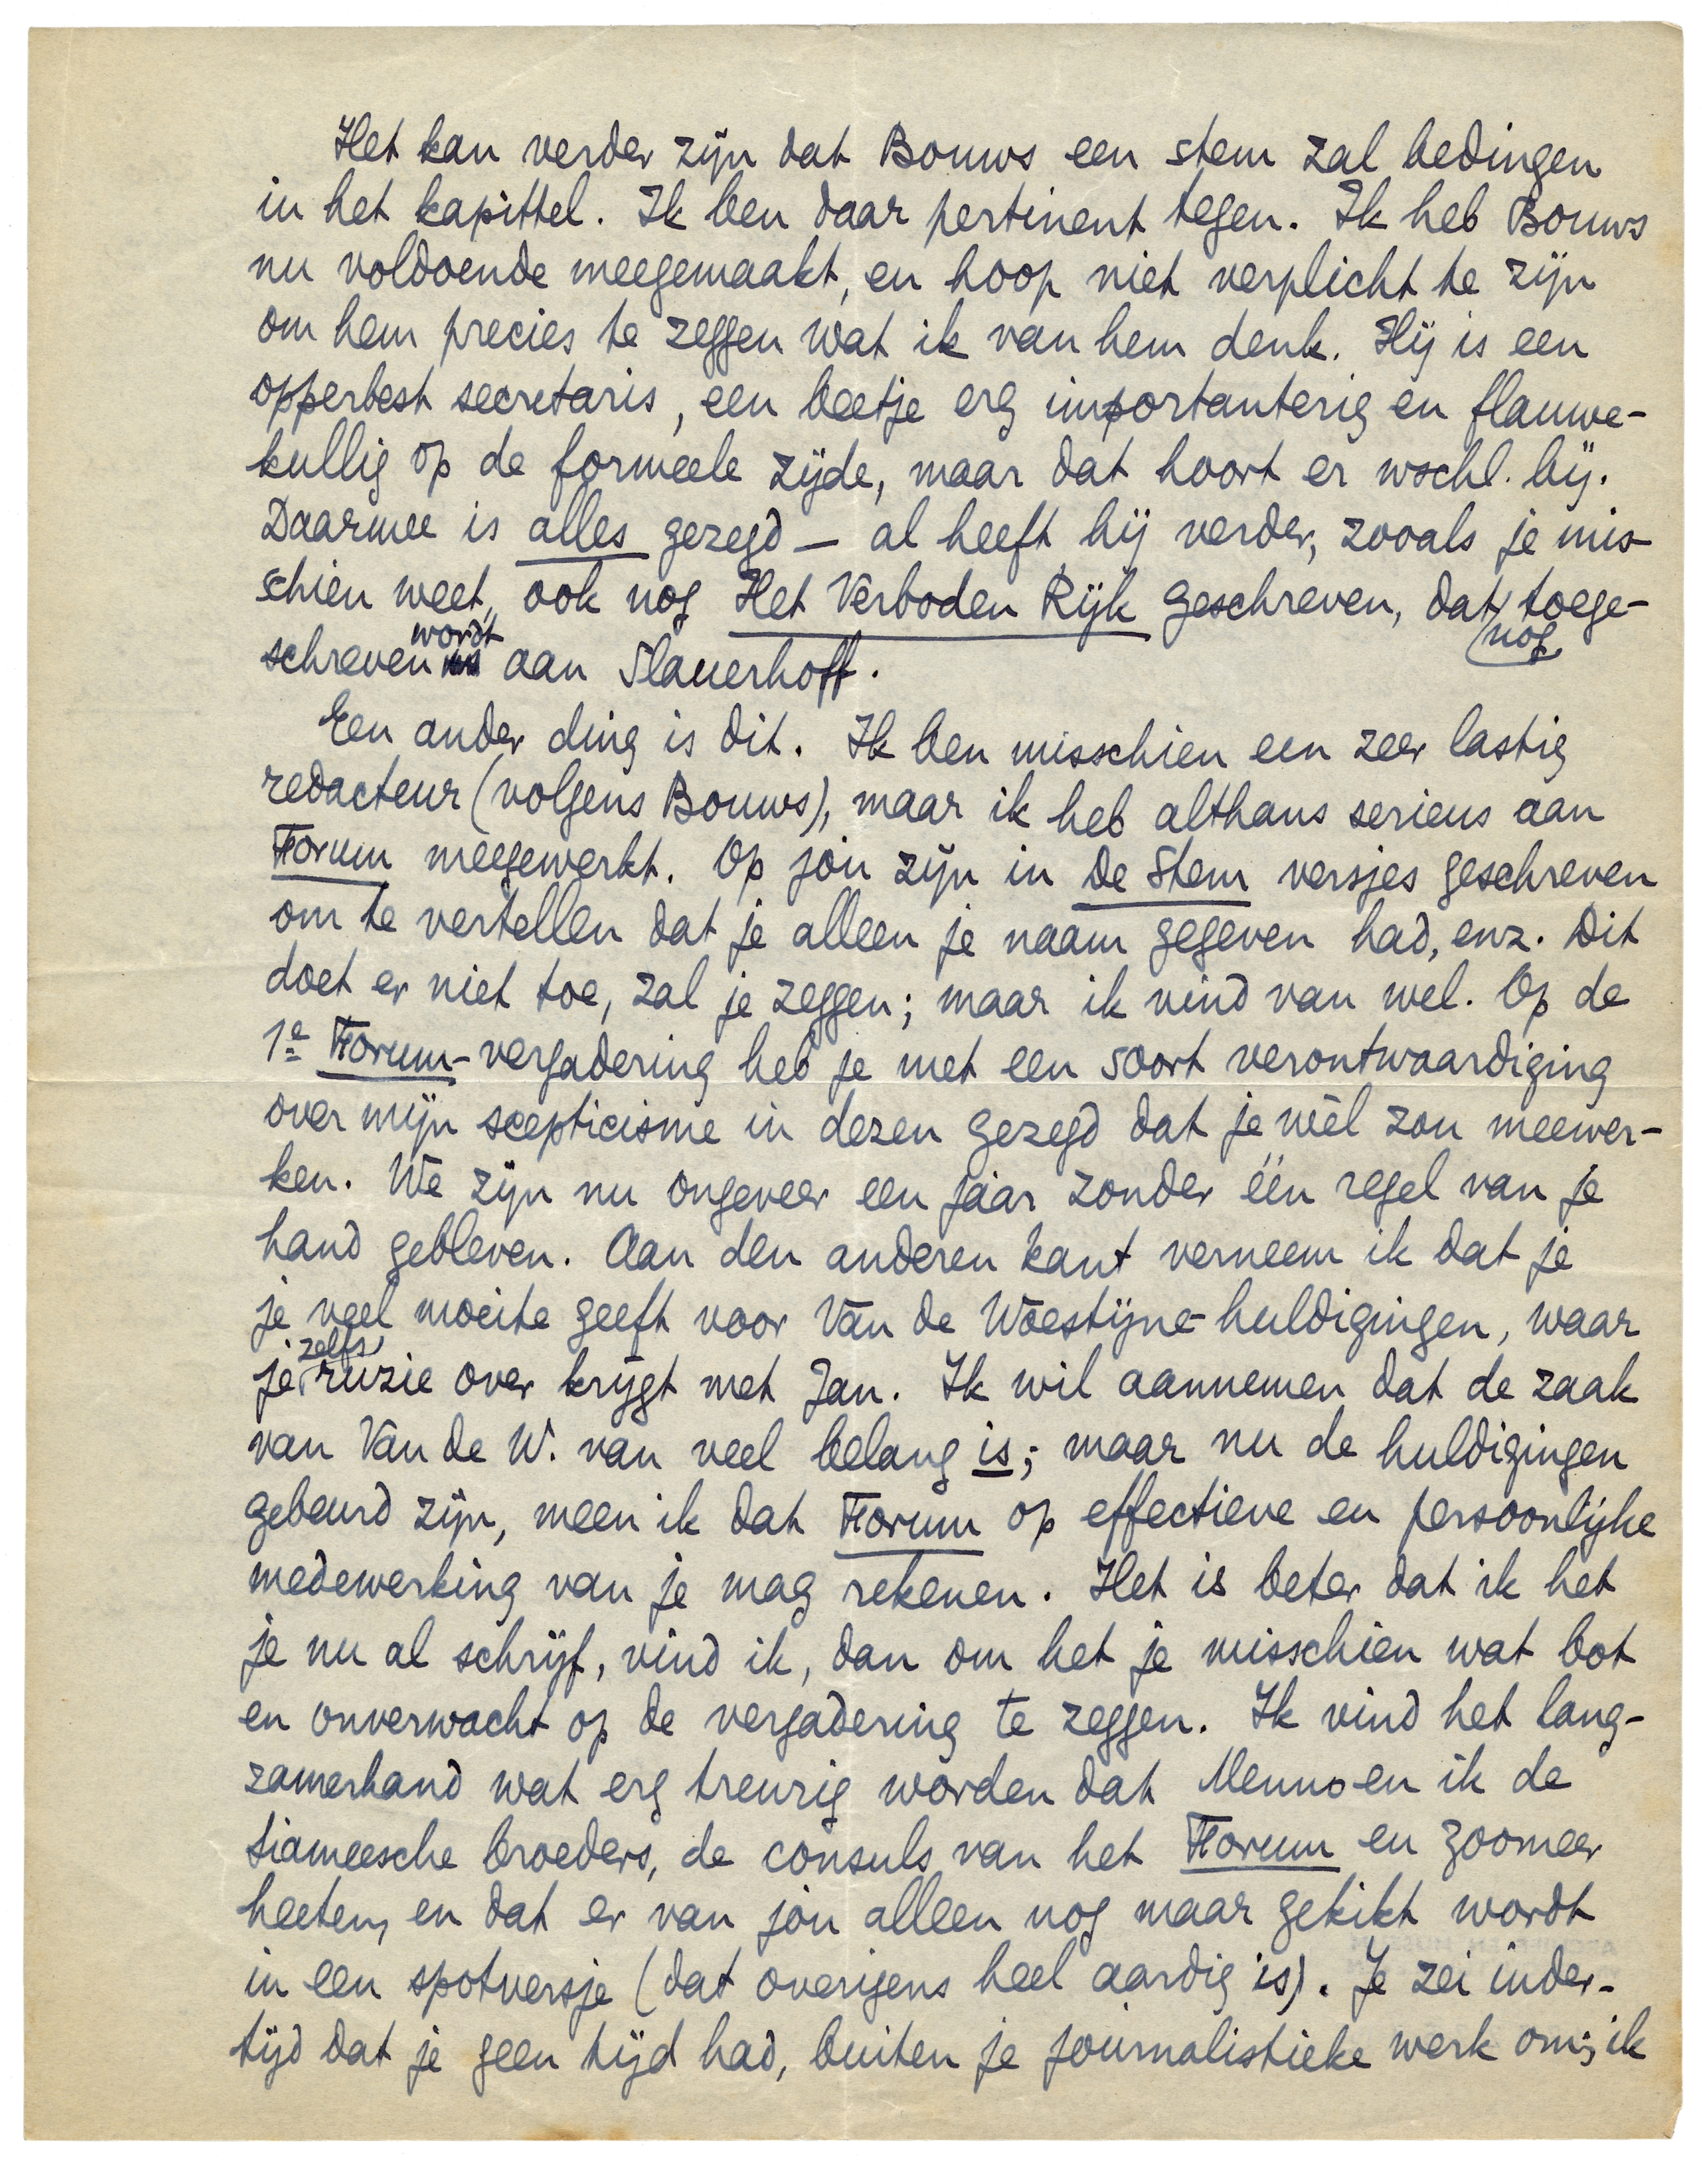 Het kan verder zijn dat Bouws een stem zal bedingen
in het kapittel. Ik ben daar pertinent tegen. Ik heb Bouws
nu voldoende meegemaakt, en hoop niet verplicht te zijn
om hem precies te zeggen wat ik van hem denk. Hij is een
opperbest secretaris, een beetje erg importanterig en flauwe-
kullig op de formeele zijde, maar dat hoort er wschl. bij.
Daarmee is alles gezegd — al heeft hij verder, zooals je mis-
schien weet, ook nog Het Verboden Rijk geschreven, dat nog toege-
schreven wordt aan Slauerhoff.
Een ander ding is dit. Ik ben misschien een zeer lastig
redacteur (volgens Bouws), maar ik heb althans serieus aan
Forum meegewerkt. Op jou zijn in De Stem versjes geschreven
om te vertellen dat je alleen je naam gegeven had, enz. Dit
doet er niet toe, zal je zeggen; maar ik vind van wel. Op de
1e Forum-vergadering heb je met een soort verontwaardiging
over mijn scepticisme in dezen gezegd dat je wèl zou meewer-
ken. We zijn nu ongeveer een jaar zonder één regel van je
hand gebleven. Aan den anderen kant verneem ik dat je
je veel moeite geeft voor Van de Woestijne-huldigingen, waar
je zelfs ruzie over krijgt met Jan. Ik wil aannemen dat de zaak
van Van de W. van veel belang is; maar nu de huldigingen
gebeurd zijn, meen ik dat Forum op effectieve en persoonlijke
medewerking van je mag rekenen. Het is beter dat ik het
je nu al schrijf, vind ik, dan om het je misschien wat bot
en onverwacht op de vergadering te zeggen. Ik vind het lang-
zamerhand wat erg treurig worden dat Menno en ik de
siameesche broeders, de consuls van het Forum en zoomeer
heeten, en dat er van jou alleen nog maar gekikt wordt
in een spotversje (dat overigens heel aardig is). Je zei inder-
tijd dat je geen tijd had, buiten je journalistieke werk om; ik